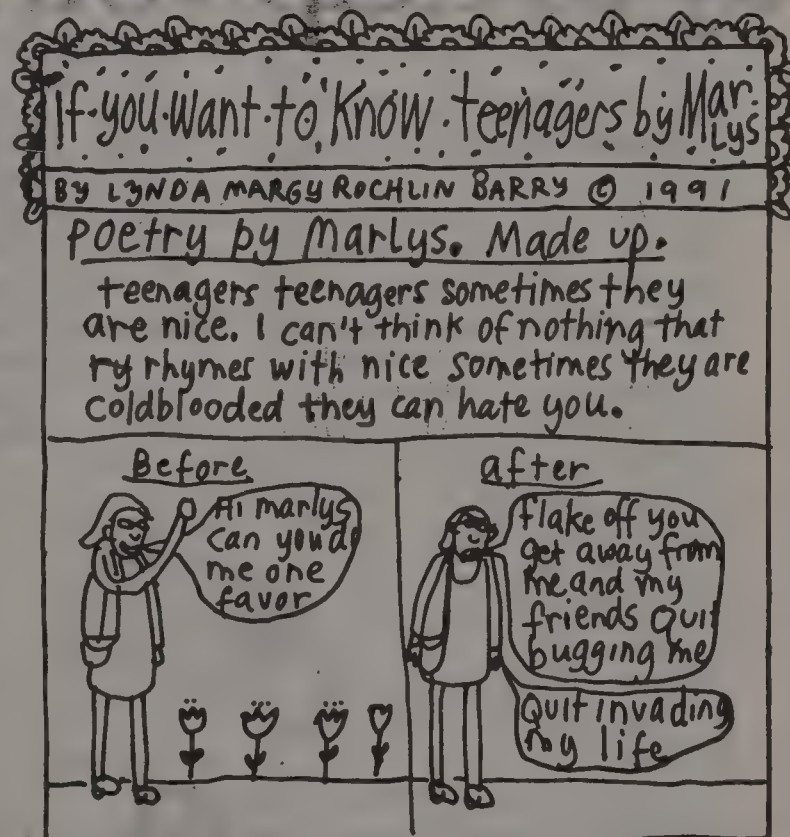 If you want to Know teenagers by Marlys
BY LYNDA MARGY ROCHLIN BARRY © 1991
Poetry by Marlys. Made up.
teenagers teenagers sometimes they
are nice. I can't think of nothing that
ry rhymes with nice sometimes they are
coldblooded they can hate you.
Before
Hi marlys
can you do
me one
favor
after
flake off you
get away from
me and my
friends Quit
bugging me
Quit invading
my life